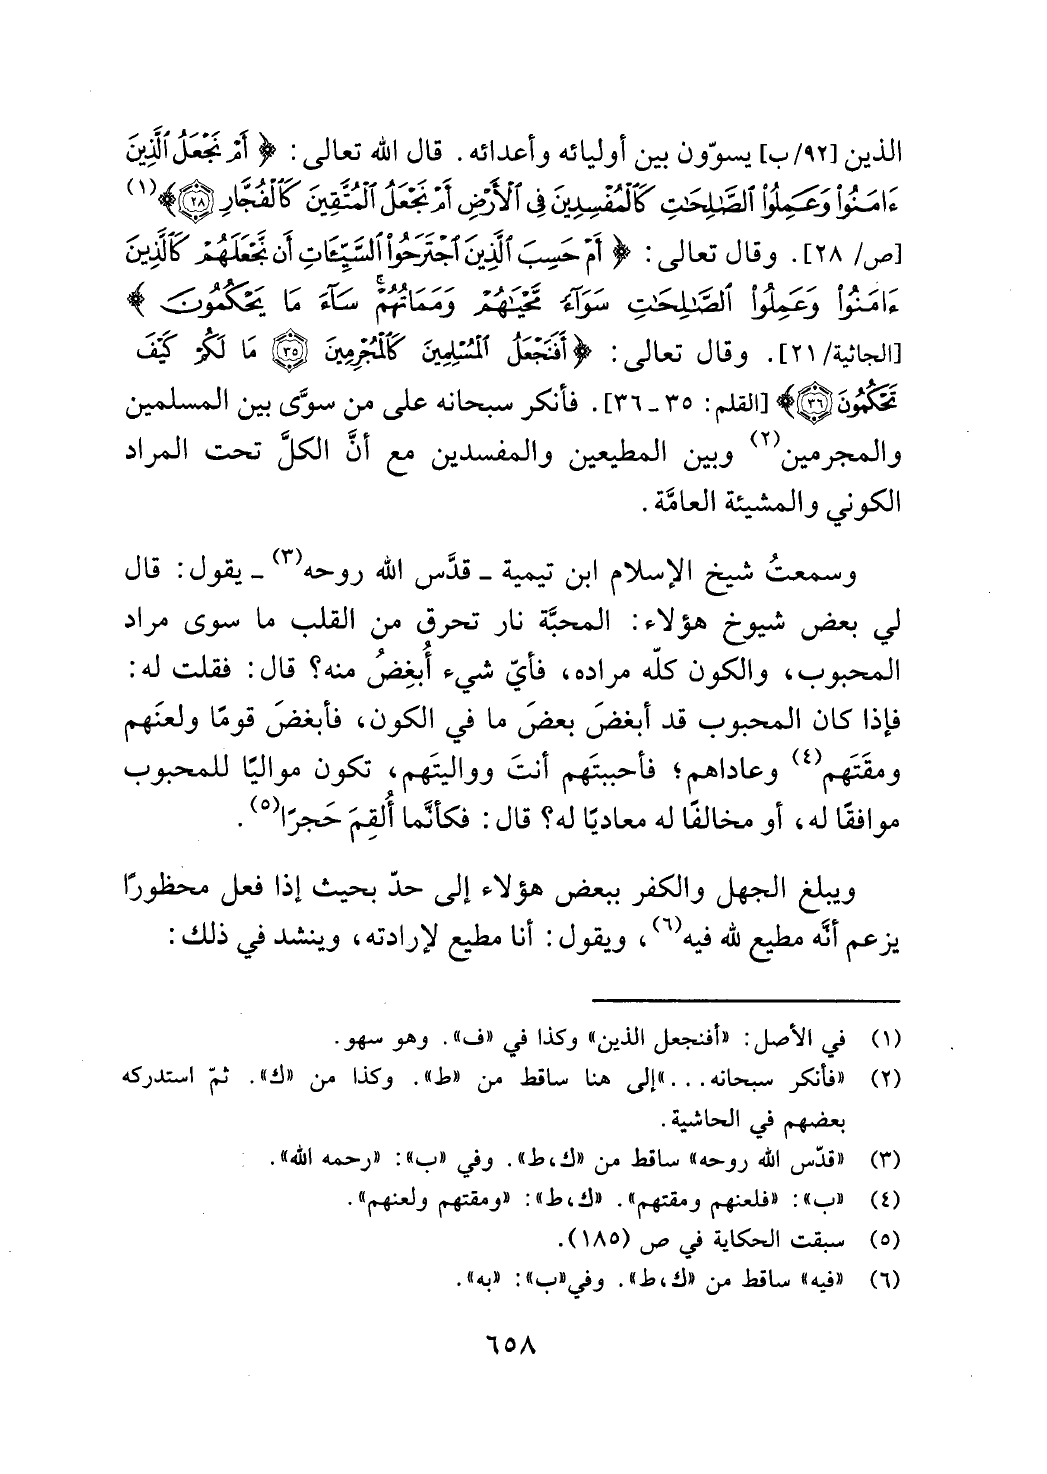 الذين [٩٢/ب] يسوّون بين أوليائه وأعدائه. قال الله تعالى: ﴿ أَمْ نَجْعَلُ ٱلَّذِينَ
ءَامَنُوا۟ وَعَمِلُوا۟ ٱلصَّـٰلِحَـٰتِ كَٱلْمُفْسِدِينَ فِى ٱلْأَرْضِ أَمْ نَجْعَلُ ٱلْمُتَّقِينَ كَٱلْفُجَّارِ ۝٢٨﴾(١)
[ص/ ٢٨]. وقال تعالى: ﴿ أَمْ حَسِبَ ٱلَّذِينَ ٱجْتَرَحُوا۟ ٱلسَّيِّـَٔاتِ أَن نَّجْعَلَهُمْ كَٱلَّذِينَ
ءَامَنُوا۟ وَعَمِلُوا۟ ٱلصَّـٰلِحَـٰتِ سَوَآءً مَّحْيَاهُمْ وَمَمَاتُهُمْ ۚ سَآءَ مَا يَحْكُمُونَ ﴾
[الجاثية/ ٢١]. وقال تعالى: ﴿أَفَنَجْعَلُ ٱلْمُسْلِمِينَ كَٱلْمُجْرِمِينَ ۝٣٥ مَا لَكُمْ كَيْفَ
تَحْكُمُونَ ۝٣٦﴾ [القلم: ٣٥ ـ ٣٦]. فأنكر سبحانه على من سوَّى بين المسلمين
والمجرمين(٢) وبين المطيعين والمفسدين مع أنَّ الكلَّ تحت المراد
الكوني والمشيئة العامَّة.
وسمعتُ شيخ الإسلام ابن تيمية ـ قدَّس الله روحه(٣) ـ يقول: قال
لي بعض شيوخ هؤلاء: المحبَّة نار تحرق من القلب ما سوى مراد
المحبوب، والكون كلّه مراده، فأيّ شيء أُبغِضُ منه؟ قال: فقلت له:
فإذا كان المحبوب قد أبغضَ بعضَ ما في الكون، فأبغضَ قومًا ولعنَهم
ومقَتَهم(٤) وعاداهم؛ فأحببتَهم أنتَ وواليتَهم، تكون مواليًا للمحبوب
موافقًا له، أو مخالفًا له معاديًا له؟ قال: فكأنَّما أُلقِمَ حَجرًا(٥).
ويبلغ الجهل والكفر ببعض هؤلاء إلى حدّ بحيث إذا فعل محظورًا
يزعم أنَّه مطيع لله فيه(٦)، ويقول: أنا مطيع لإرادته، وينشد في ذلك:
(١) في الأصل: «أفنجعل الذين» وكذا في «ف». وهو سهو.
(٢) «فأنكر سبحانه...»إلى هنا ساقط من «ط». وكذا من «ك». ثمّ استدركه
بعضهم في الحاشية.
(٣) «قدّس الله روحه» ساقط من «ك،ط». وفي «ب»: «رحمه الله».
(٤) «ب»: «فلعنهم ومقتهم». «ك،ط»: «ومقتهم ولعنهم».
(٥) سبقت الحكاية في ص (١٨٥).
(٦) «فيه» ساقط من «ك،ط». وفي«ب»: «به».
٦٥٨